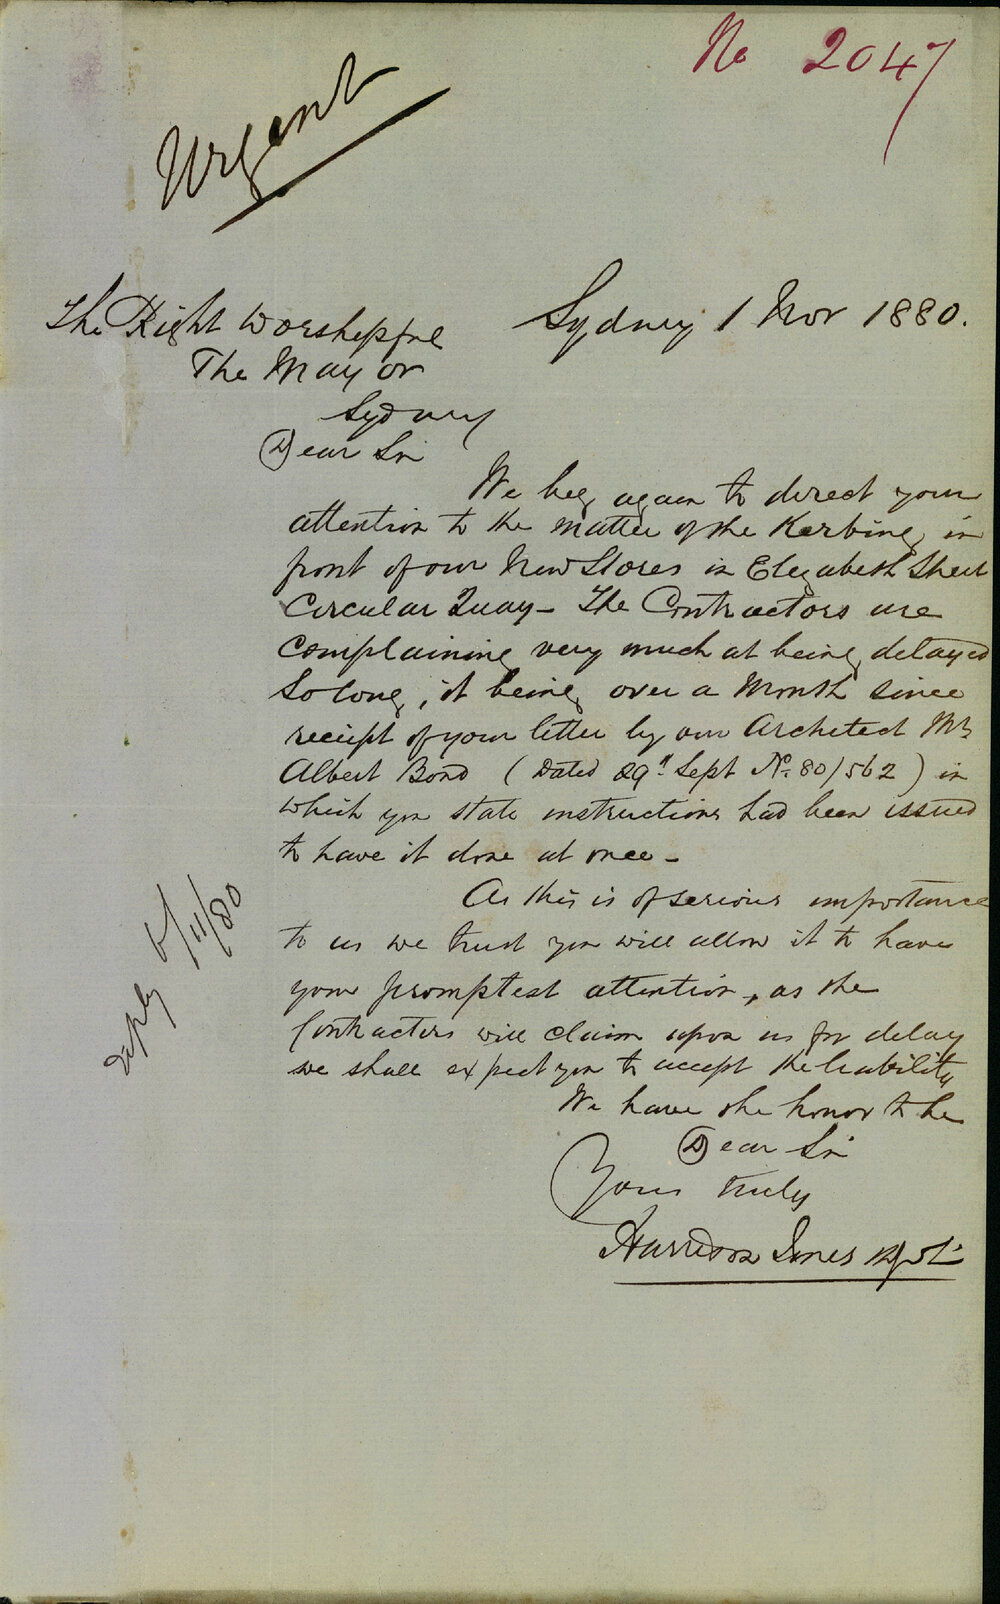 No 2047
Urgent
Sydney 1 Nov 1880.
The Right Worshipful
The Mayor
Sydney
Dear Sir
We beg again to direct your
attention to the matter of the Kerbing in
front of our New Stores in Elizabeth Street
Circular Quay - The Contractors are
complaining very much at being delayed
so long, it being over a Month since
receipt of your letter by our Architect Mr
Albert Bond (Dated 29th Sept No. 80/562) in
which you state instructions had been issued
to have it done at once -
As this is of serious importance
to us we trust you will allow it to have
your promptest attention, as the
Contractors will claim upon us for delay
we shall expect you to accept the liability
We have the honor to be
Dear Sir
Yours truly
Harrison Jones
reply 6/11/80